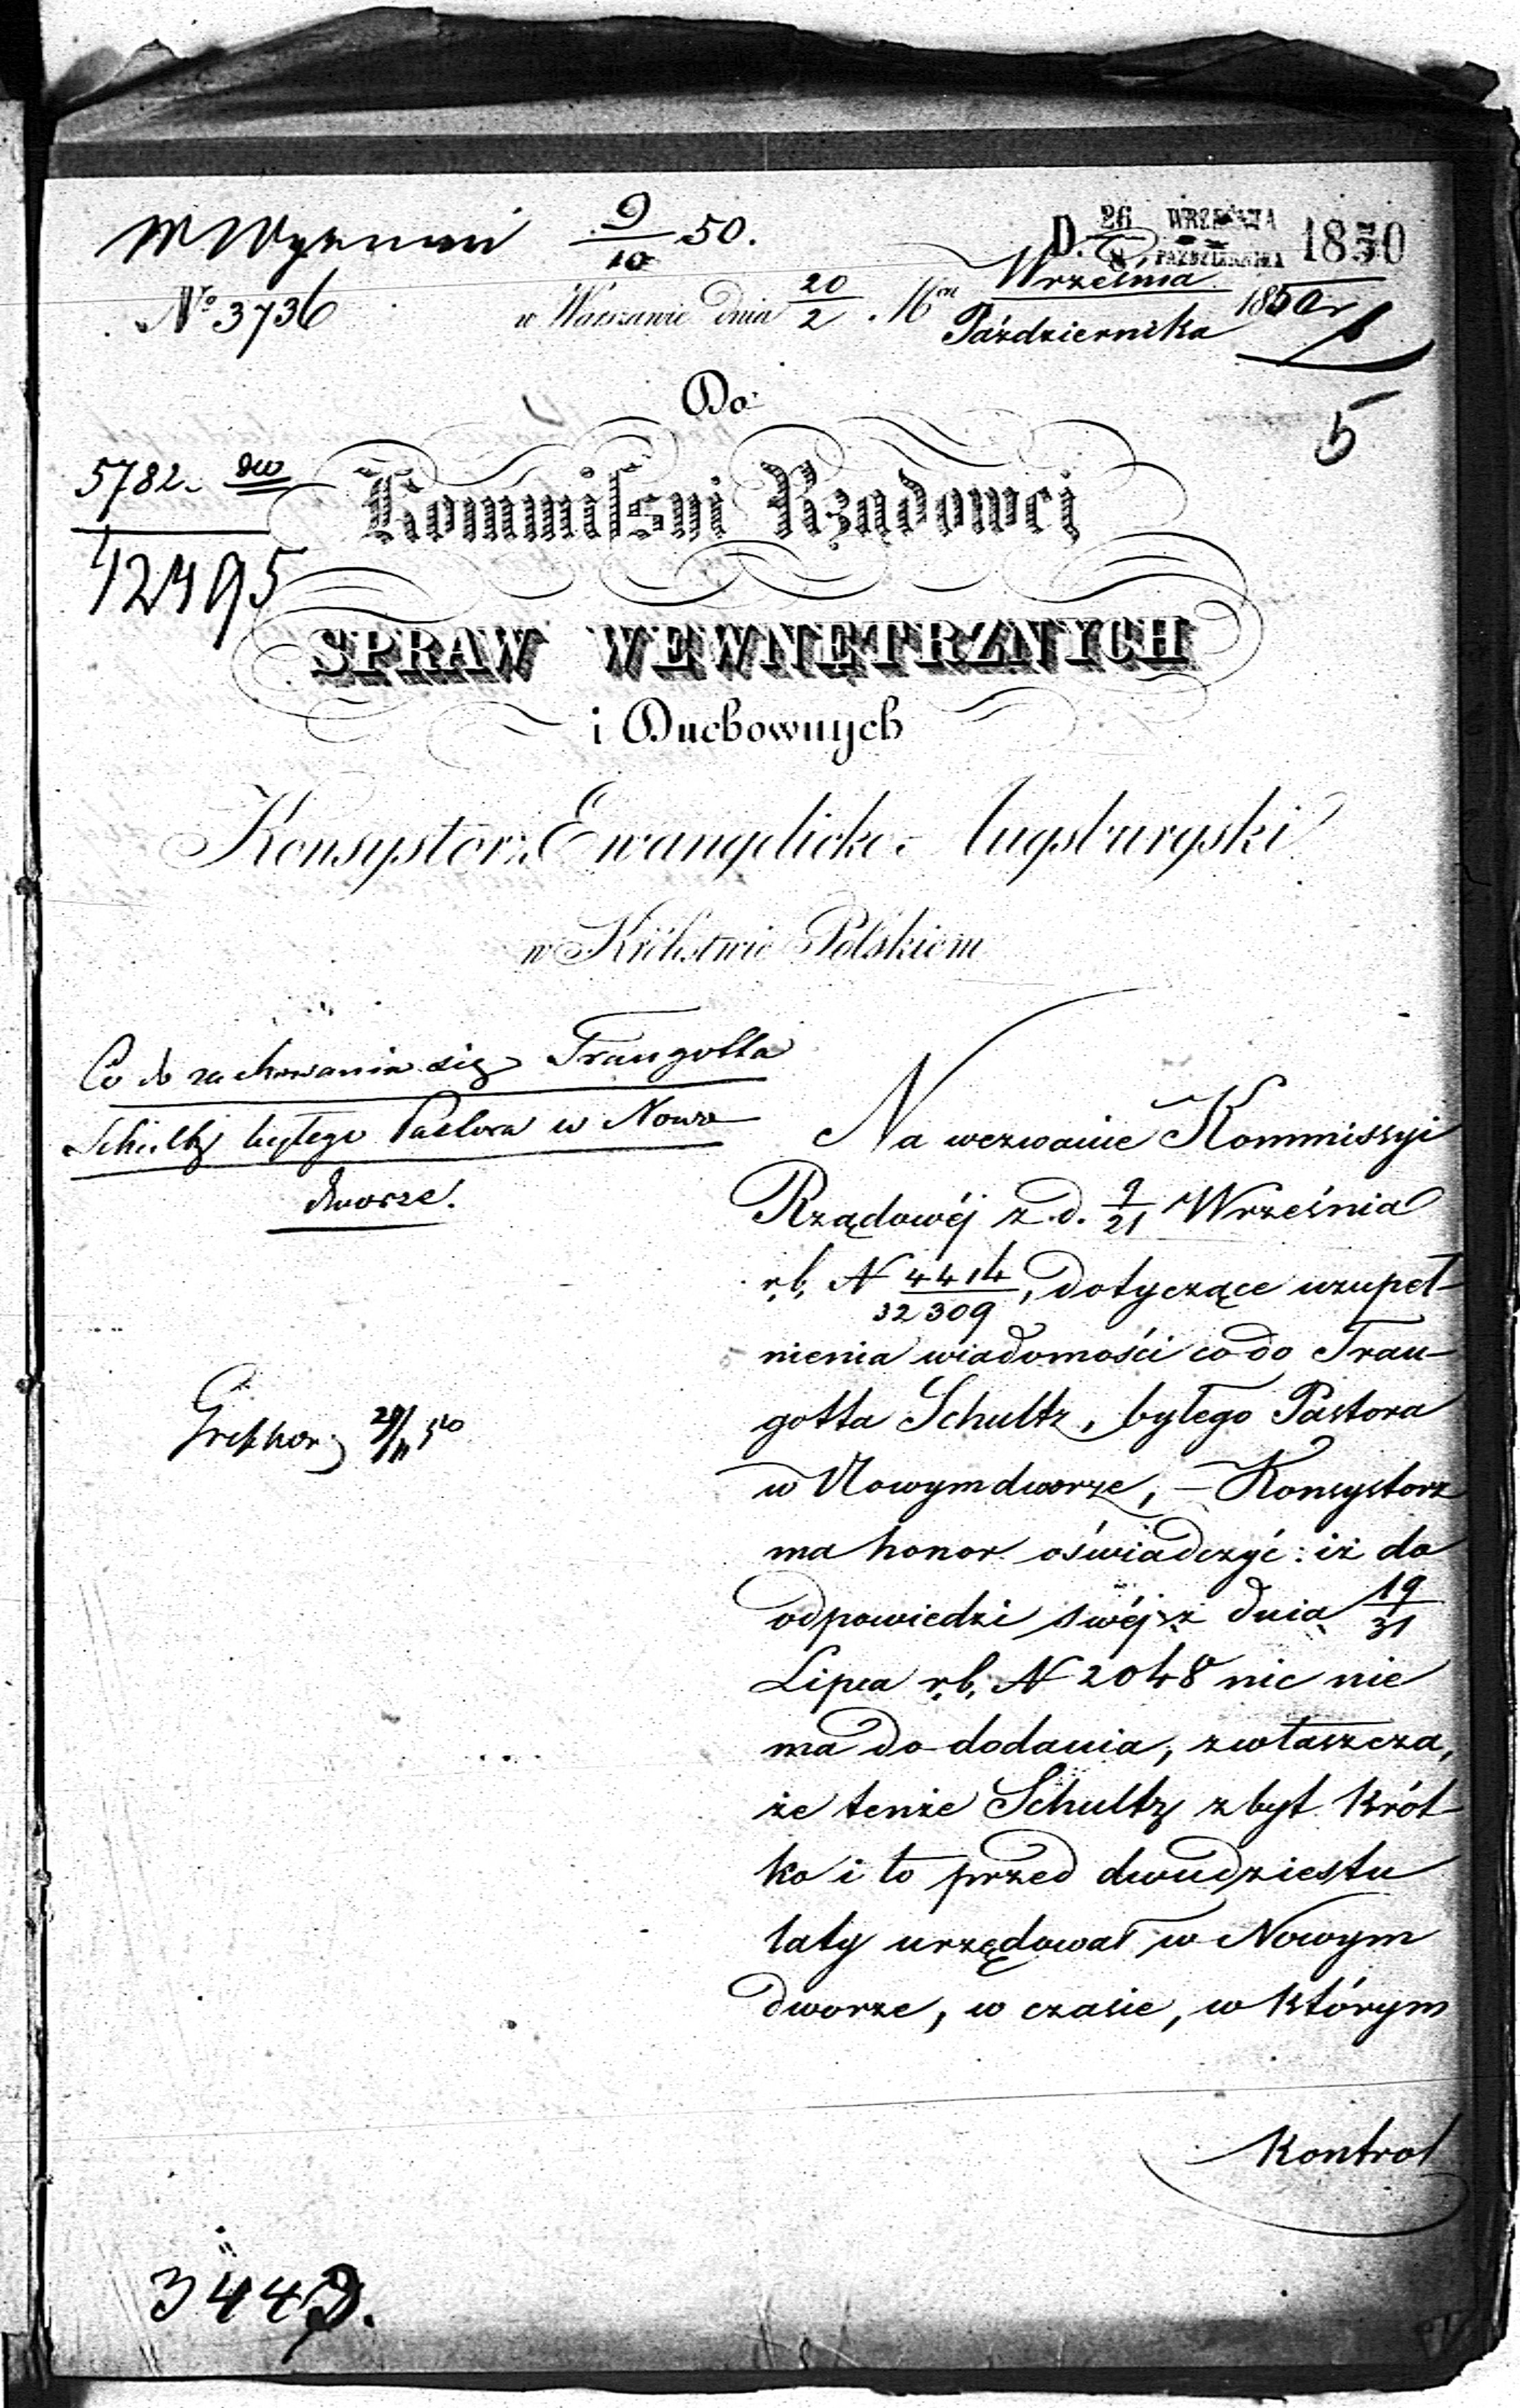 9/10 50.
D. 26/8 WRZEŚNIA/PAŹDZIERNIKA 1850
No 3736
w Warszawie dnia 20/2 Mca Września/Października 1850 r
5
Do
5782 dw
12495
Kommissyi Rządowej
SPRAW WEWNĘTRZNYCH
i Duchownych
Konsystorz Ewangelicko-Augsburgski
w Królestwie Polskiem
Co do zachowania się Traugotta
Schultz byłego Pastora w Nowo
dworze.
Na wezwanie Kommissyi
Rządowéj z d. 9/21 Września
r.b. N 4414/32309, dotyczące uzupeł-
nienia wiadomości co do Trau-
gotta Schultz, byłego Pastora
w Nowymdworze, – Konsystorz
ma honor oświadczyć: iż do
odpowiedzi swéj z dnia 19/31
Lipca r.b. N 2048 nic nie
ma do dodania, zwłaszcza,
że tenże Schultz zbyt krót-
ko i to przed dwudziestu
laty urzędował w Nowym
dworze, w czasie, w którym
Kontrol
3449.